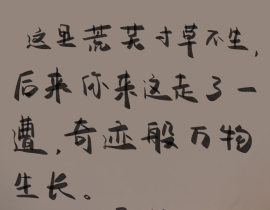 这里荒芜寸草不生,
后来你来这走了一
遭,奇迹般万物
生长。